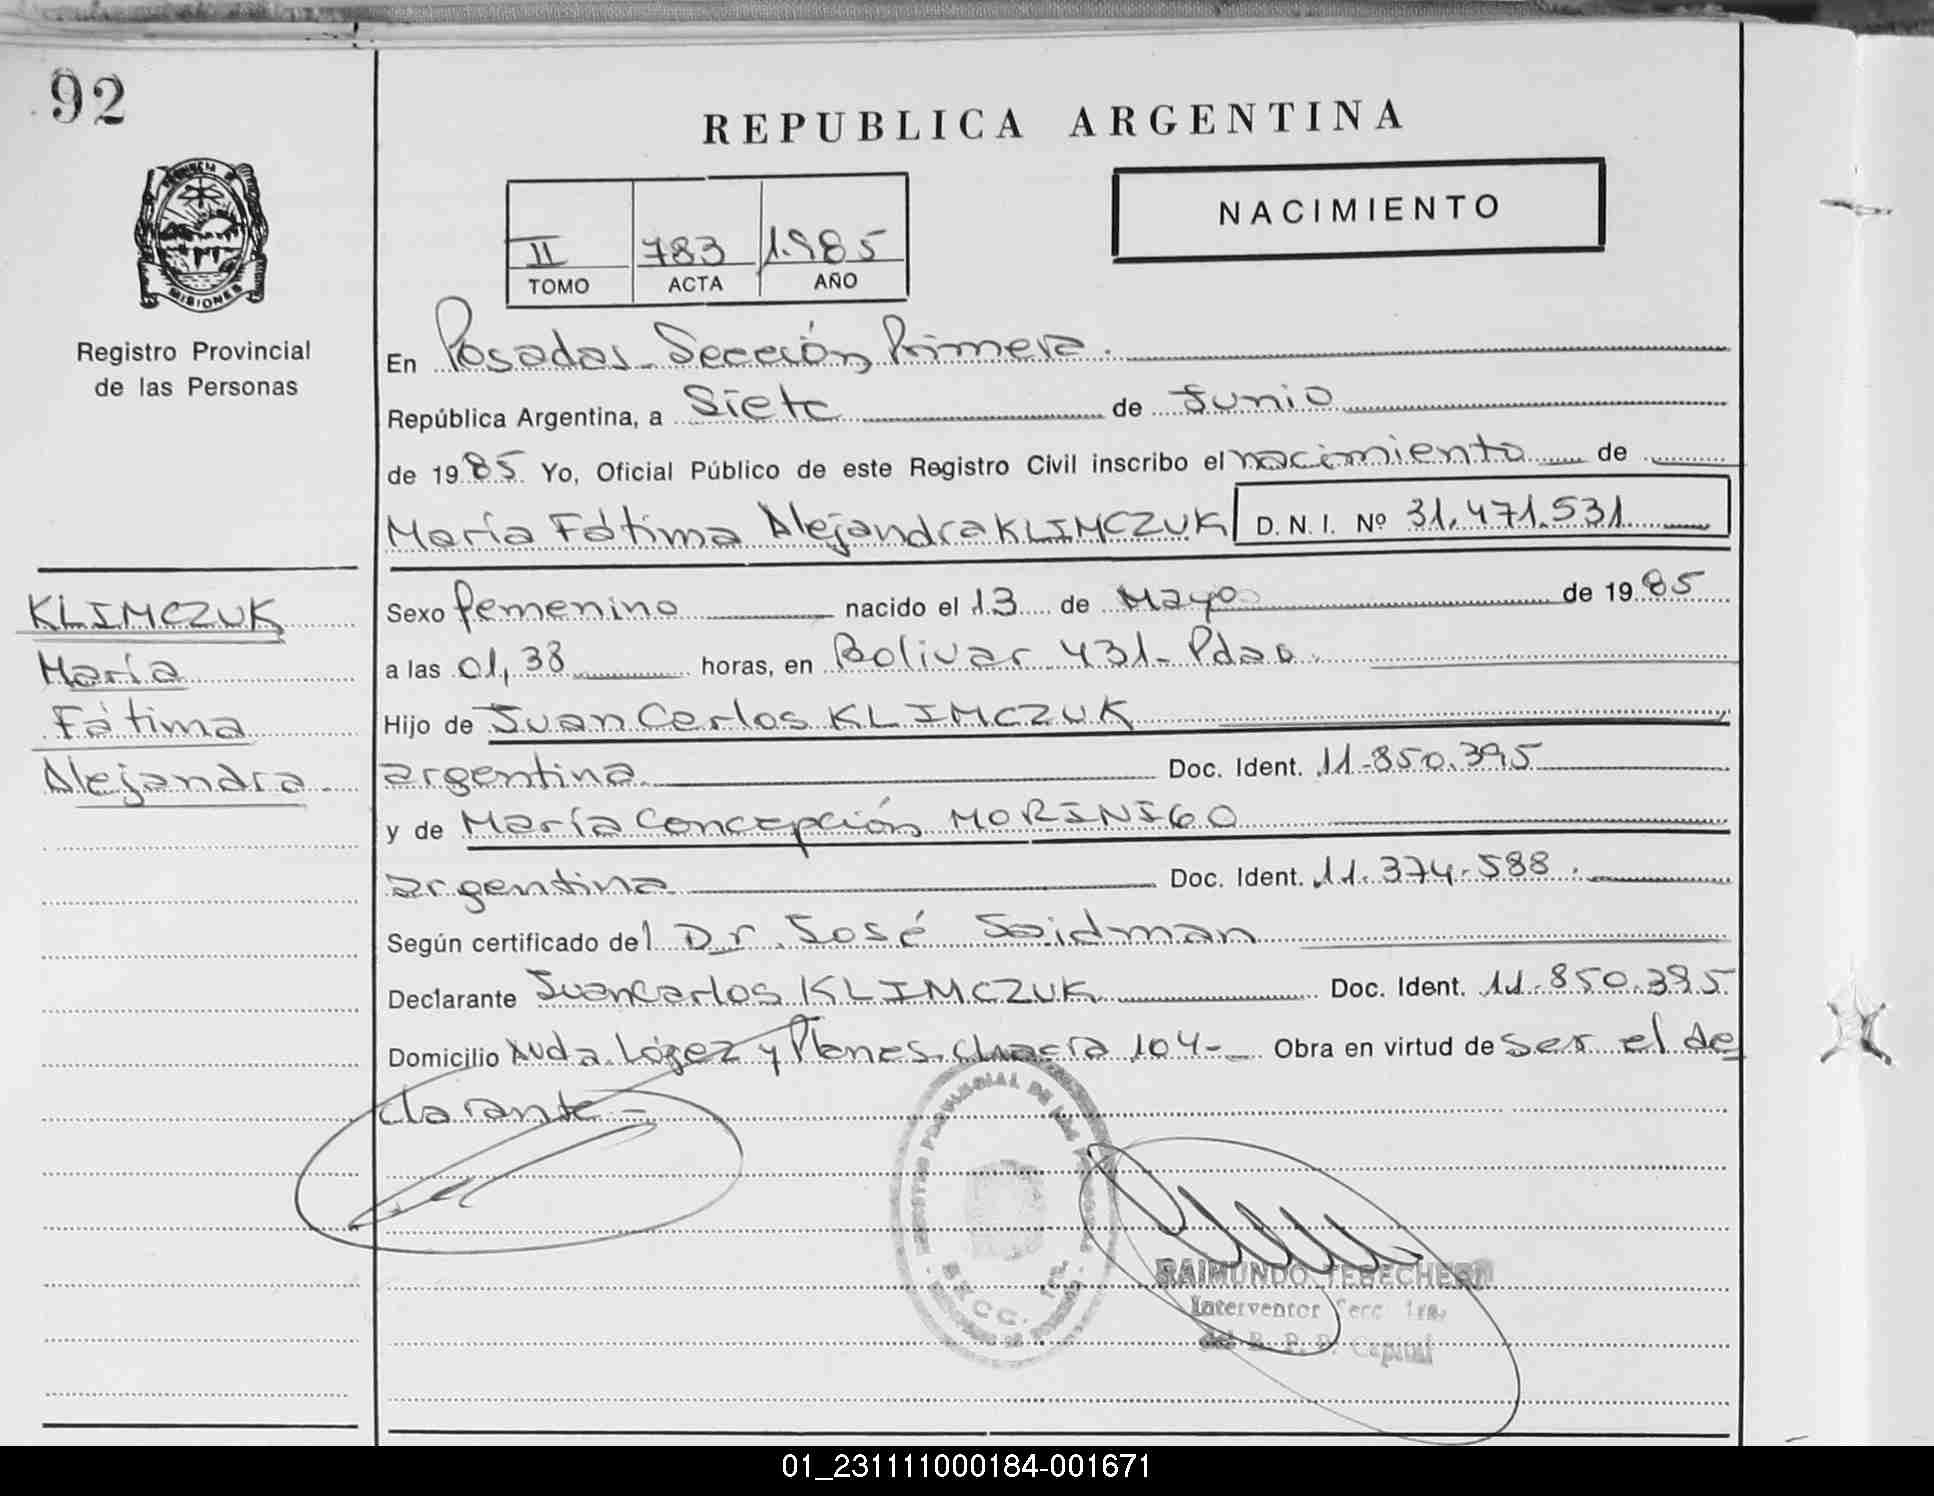 92
REPUBLICA ARGENTINA
NACIMIENTO
II 783 1.985
TOMO ACTA AÑO
MISIONES
Registro Provincial
de las Personas
En Posadas Sección Primera.
República Argentina, a Siete de Junio
de 1985 Yo, Oficial Público de este Registro Civil inscribo el nacimiento de
María Fátima Alejandra KLIMCZUK D. N. I. Nº 31.471.531
KLIMCZUK
María
Fátima
Alejandra
Sexo femenino nacido el 13 de Mayo de 1985
a las 01,38 horas, en Bolivar 431- Pdas.
Hijo de Juan Carlos KLIMCZUK
argentina Doc. Ident. 11.850.395
y de María Concepción MORINIGO
argentina Doc. Ident. 11.374.588.
Según certificado del Dr. José Saidman
Declarante Juan Carlos KLIMCZUK Doc. Ident. 11.850.395
Domicilio Avda. López y Planes, chacra 104- Obra en virtud de ser el de
clarante -
RAIMUNDO
Interventor Secc. 1ra.
del R. P. P. Capital
01_231111000184-001671